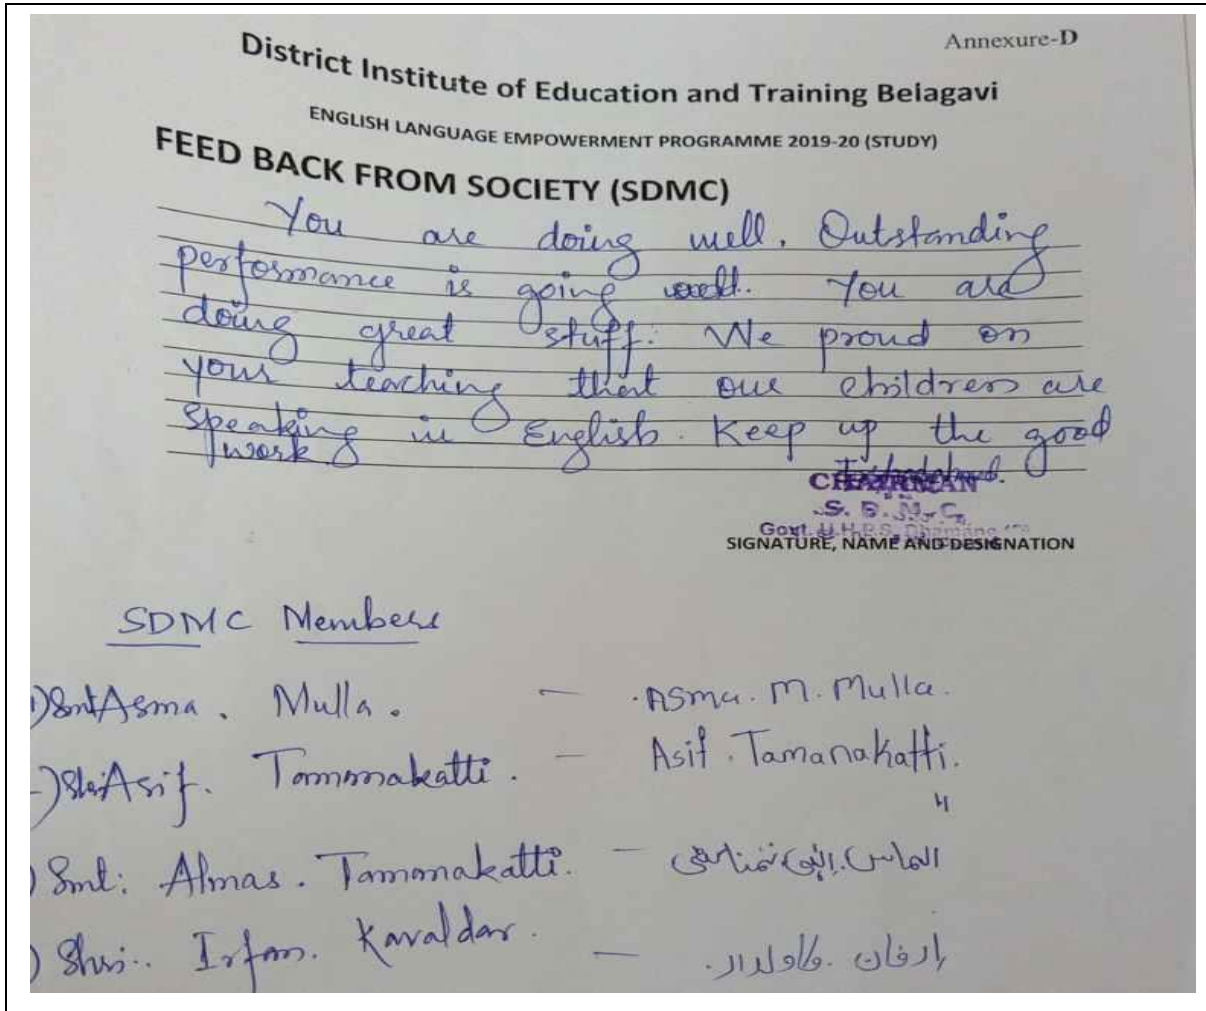 Annexure-D
District Institute of Education and Training Belagavi
ENGLISH LANGUAGE EMPOWERMENT PROGRAMME 2019-20 (STUDY)
FEED BACK FROM SOCIETY (SDMC)
You are doing well. Outstanding
performance is going well. You are
doing great stuff. We proud on
your teaching that our children are
speaking in English. Keep up the good
work.
CHAIRMAN
S. D. M. C.
Govt. U.H.P.S.
SIGNATURE, NAME AND DESIGNATION
SDMC Members
1) Smt Asma. Mulla. - Asma. M. Mulla.
-) Shri Asif. Tamanakatti. - Asif. Tamanakatti.
"
) Smt: Almas. Tamanakatti. - الماس
) Shri.. Irfan. Kavaldar. - إرفان. کاولدار.